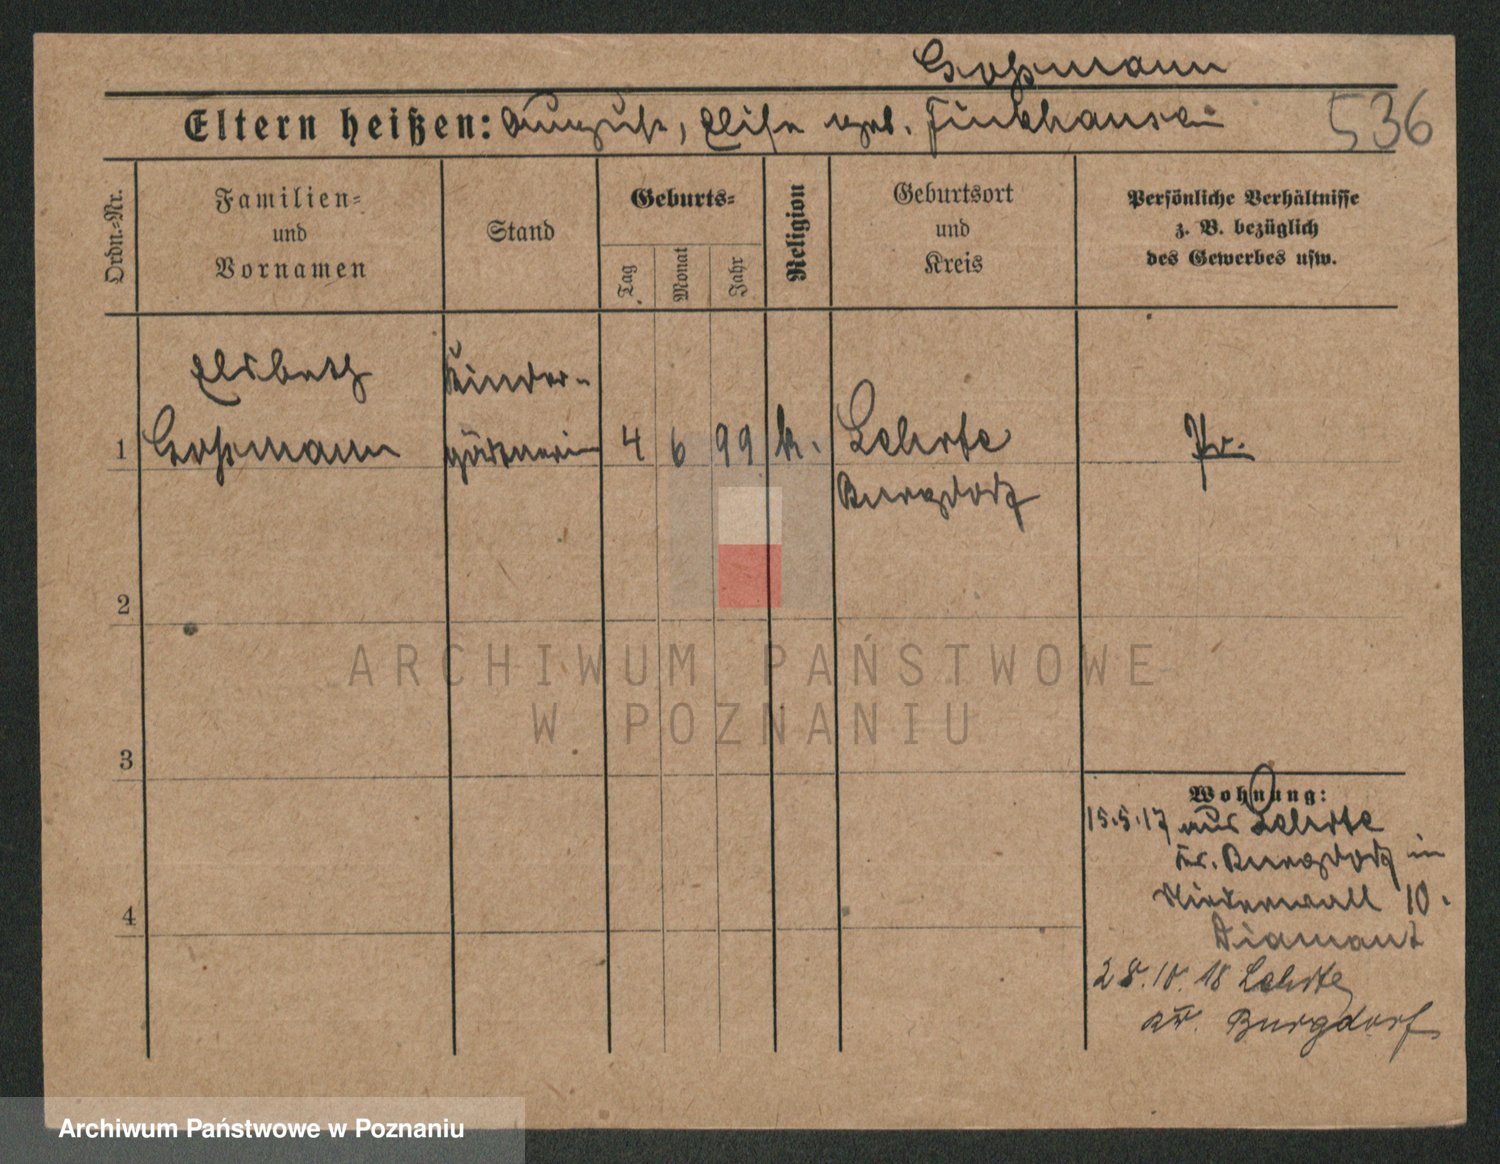 Großmann
Eltern heißen: August, Elise geb. Finkhausen
536
Ordn.-Nr.
Familien-
und
Vornamen
Stand
Geburts-
Tag
Monat
Jahr
Religion
Geburtsort
und
Kreis
Persönliche Verhältnisse
z. B. bezüglich
des Gewerbes usw.
Elsbeth Kinder-
1 Großmann gärtnerin 4 6 99 k. Lehrte Pr.
Burgdorf
2
3
4
Wohnung:
15.5.17 aus Lehrte
Kr. Burgdorf in
Niederwall 10.
Diamant
28.10.18 Lehrte
Kr. Burgdorf
ARCHIWUM PAŃSTWOWE
W POZNANIU
Archiwum Państwowe w Poznaniu